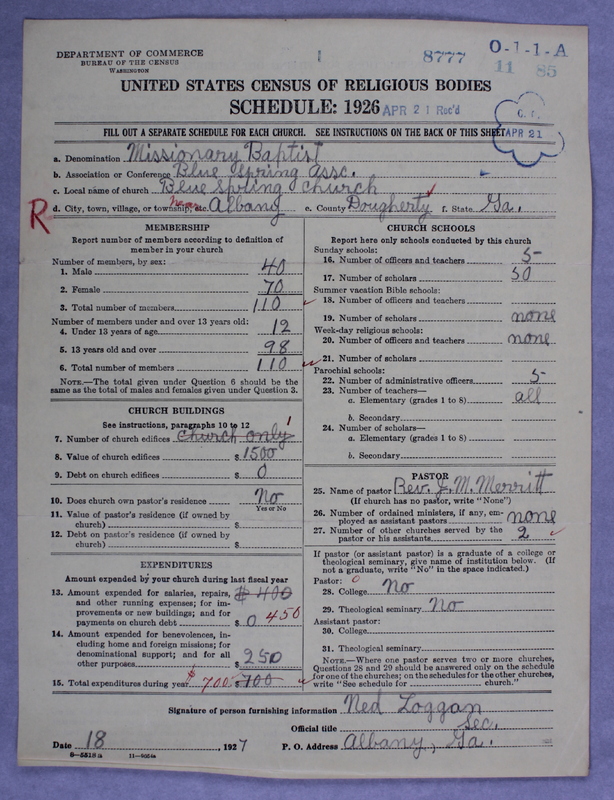 DEPARTMENT OF COMMERCE
BUREAU OF THE CENSUS
WASHINGTON
1
8777
O-1-1-A
11 85
UNITED STATES CENSUS OF RELIGIOUS BODIES
SCHEDULE: 1926
APR 21 Rec'd
FILL OUT A SEPARATE SCHEDULE FOR EACH CHURCH. SEE INSTRUCTIONS ON THE BACK OF THIS SHEET
APR 21
a. Denomination Missionary Baptist
b. Association or Conference Blue Spring Assc.
c. Local name of church Blue Spring Church
R d. City, town, village, or township, etc. near Albany e. County Dougherty f. State Ga.
MEMBERSHIP
Report number of members according to definition of member in your church
Number of members, by sex:
1. Male 40
2. Female 70
3. Total number of members 110
Number of members under and over 13 years old:
4. Under 13 years of age 12
5. 13 years old and over 98
6. Total number of members 110
NOTE.—The total given under Question 6 should be the
same as the total of males and females given under Question 3.
CHURCH BUILDINGS
See instructions, paragraphs 10 to 12
7. Number of church edifices church only 1
8. Value of church edifices $ 1500
9. Debt on church edifices $ 0
10. Does church own pastor's residence No
Yes or No
11. Value of pastor's residence (if owned by
church) $
12. Debt on pastor's residence (if owned by
church) $
EXPENDITURES
Amount expended by your church during last fiscal year
13. Amount expended for salaries, repairs, $400
and other running expenses; for im-
provements or new buildings; and for
payments on church debt $ 0 450
14. Amount expended for benevolences, in-
cluding home and foreign missions; for
denominational support; and for all
other purposes $ 250
15. Total expenditures during year $700 $700
CHURCH SCHOOLS
Report here only schools conducted by this church
Sunday schools:
16. Number of officers and teachers 5
17. Number of scholars 50
Summer vacation Bible schools:
18. Number of officers and teachers
19. Number of scholars none
Week-day religious schools:
20. Number of officers and teachers none
21. Number of scholars
Parochial schools:
22. Number of administrative officers 5
23. Number of teachers—
a. Elementary (grades 1 to 8) all
b. Secondary
24. Number of scholars—
a. Elementary (grades 1 to 8)
b. Secondary
PASTOR
25. Name of pastor Rev. J. M. Merritt
(If church has no pastor, write "None")
26. Number of ordained ministers, if any, em-
ployed as assistant pastors none
27. Number of other churches served by the
pastor or his assistants 2
If pastor (or assistant pastor) is a graduate of a college or
theological seminary, give name of institution below. (If
not a graduate, write "No" in the space indicated.)
Pastor: 0
28. College No
29. Theological seminary No
Assistant pastor:
30. College
31. Theological seminary
NOTE.—Where one pastor serves two or more churches,
Questions 28 and 29 should be answered only on the schedule
for one of the churches; on the schedules for the other churches,
write "See schedule for church."
Signature of person furnishing information Ned Loggan
Official title Sec.
Date 18, 1927 P. O. Address Albany, Ga.